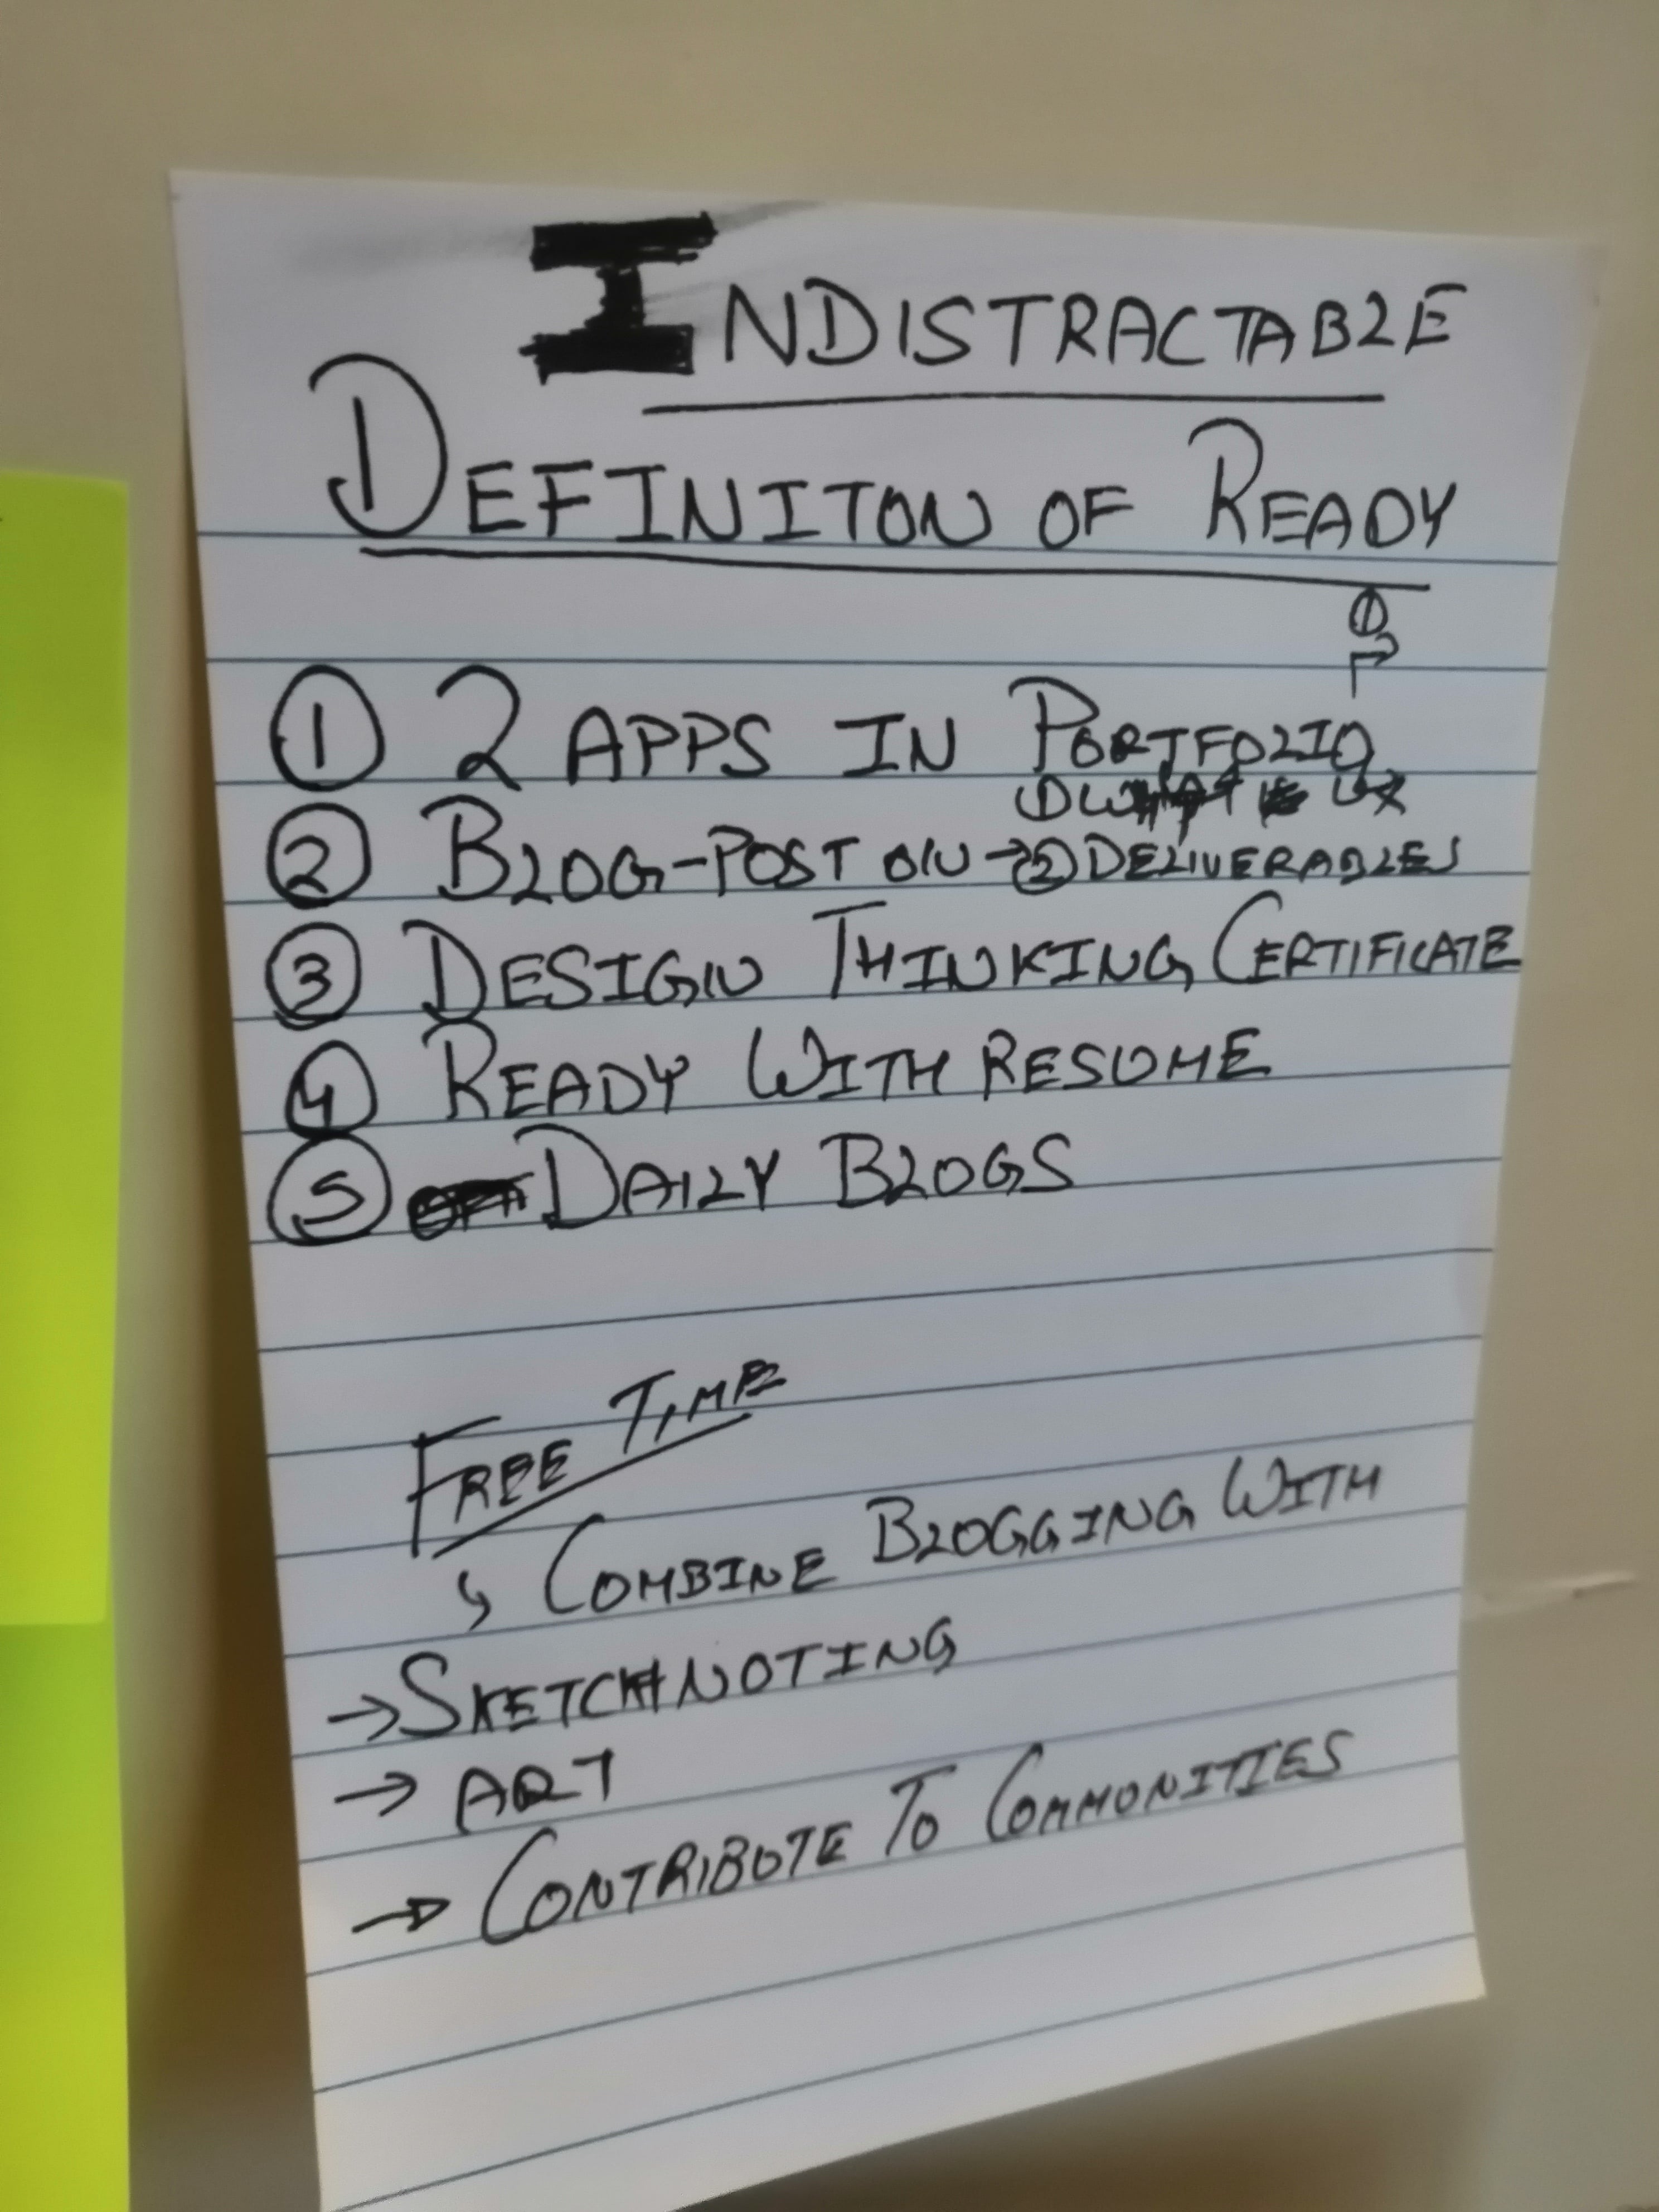 INDISTRACTABLE
DEFINITON OF READY
①
① 2 APPS IN PORTFOLIO
① WHAT IS UX
② BLOG-POST ON → ② DELIVERABLES
③ DESIGN THINKING CERTIFICATE
④ READY WITH RESUME
⑤ DAILY BLOGS
FREE TIME
↳ COMBINE BLOGGING WITH
→ SKETCHNOTING
→ ART
→ CONTRIBUTE TO COMMUNITIES